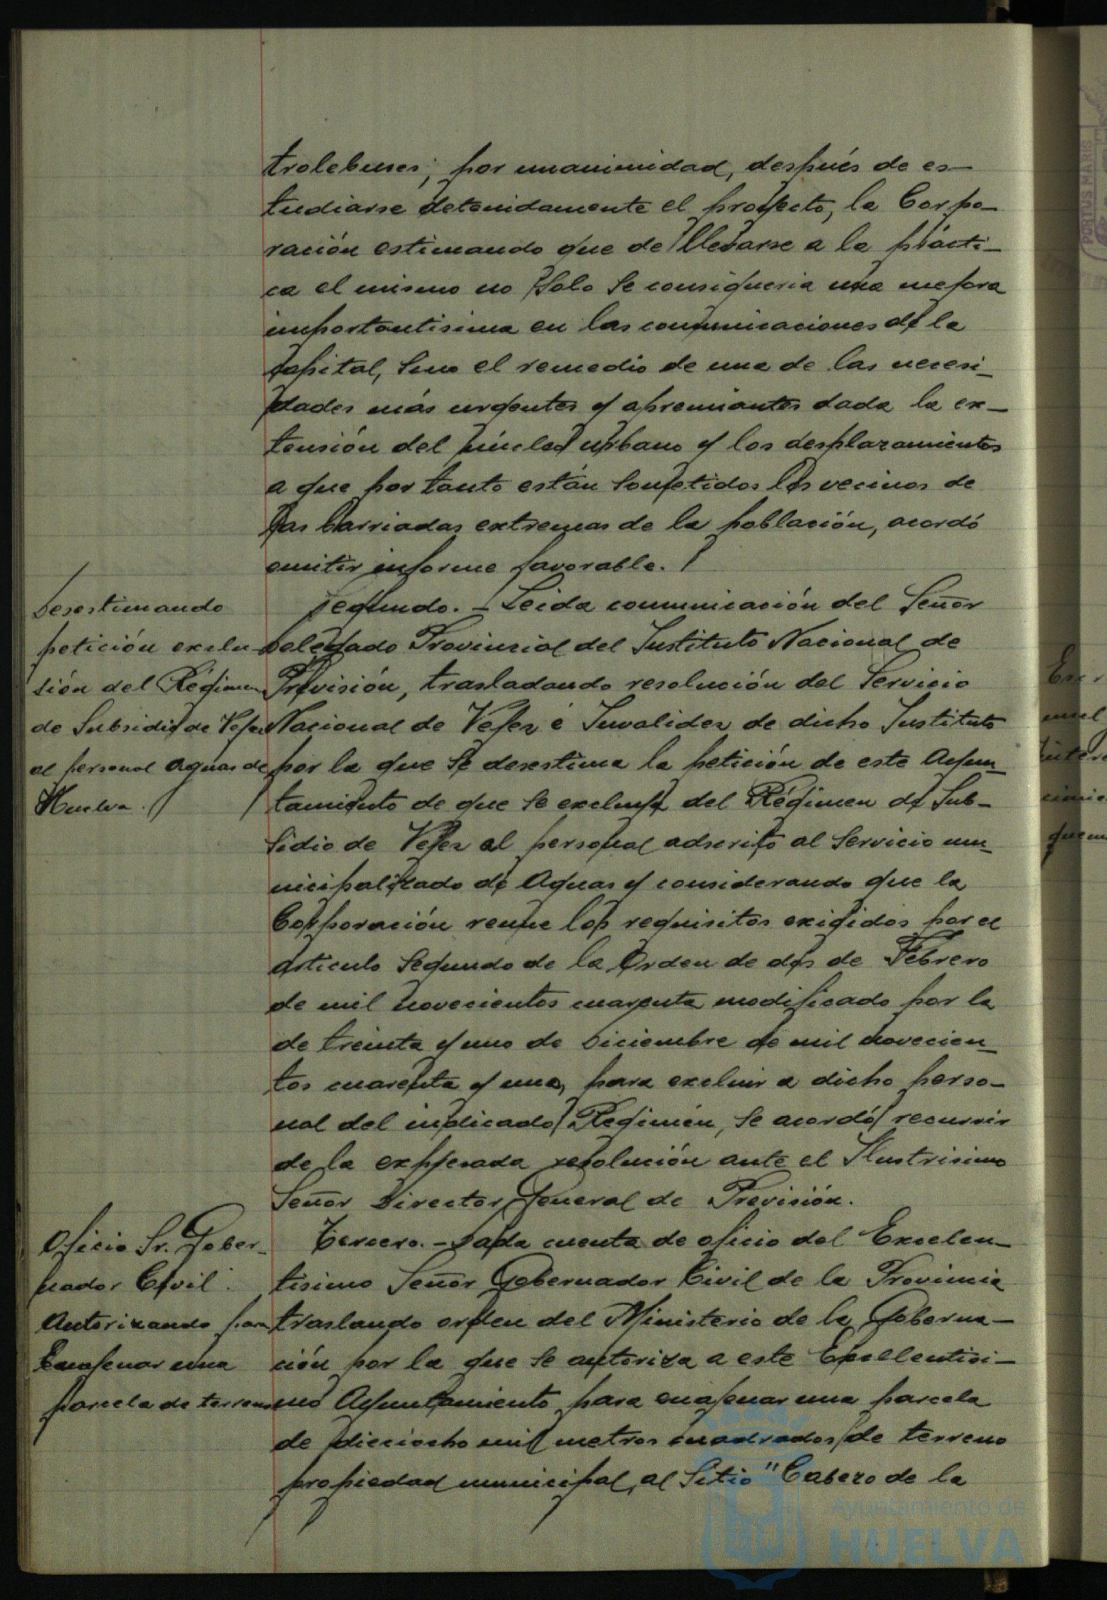 trolebuses; por unanimidad, después de es-
tudiarse detenidamente el proyecto, la Corpo-
ración estimando que de llevarse a la prácti-
ca el mismo no solo se conseguiria una mejora
importantisima en las comunicaciones de la
capital, sino el remedio de una de las necesi-
dades más urgentes y apremiantes dada la ex-
tensión del núcleo urbano y los desplazamientos
a que por tanto están sometidos los vecinos de
las barriadas extremas de la población, acordó
emitir informe favorable.
Desestimando
petición exclu-
sión del Régimen
de Subsidio de Vejez
al personal Aguas de
Huelva.
Segundo.- Leida comunicación del Señor
Delegado Provincial del Instituto Nacional de
Previsión, trasladando resolución del Servicio
Nacional de Vejez é Invalidez de dicho Instituto
por la que se desestima la petición de este Ayun-
tamiento de que se excluya del Régimen de Sub-
sidio de Vejez al personal adscrito al Servicio mu-
nicipalizado de Aguas y considerando que la
Corporación reune los requisitos exigidos por el
artículo segundo de la Orden de dos de Febrero
de mil novecientos cuarenta modificado por la
de treinta y uno de Diciembre de mil novecien-
tos cuarenta y uno, para excluir a dicho perso-
nal del indicado Regimen, se acordó recurrir
de la expresada resolución ante el Ilustrisimo
Señor Director General de Previsión.
Oficio Sr. Gober-
nador Civil
Autorizando para
Enajenar una
parcela de terreno
Tercero.- Dada cuenta de oficio del Excelen-
tisimo Señor Gobernador Civil de la Provincia
traslando orden del Ministerio de la Goberna-
ción por la que se autoriza a este Excelentisi-
mo Ayuntamiento para enajenar una parcela
de dieciocho mil metros cuadrados de terreno
propiedad municipal, al Sitio "Cabezo de la
Ayuntamiento de
HUELVA
PORTUS MARIS